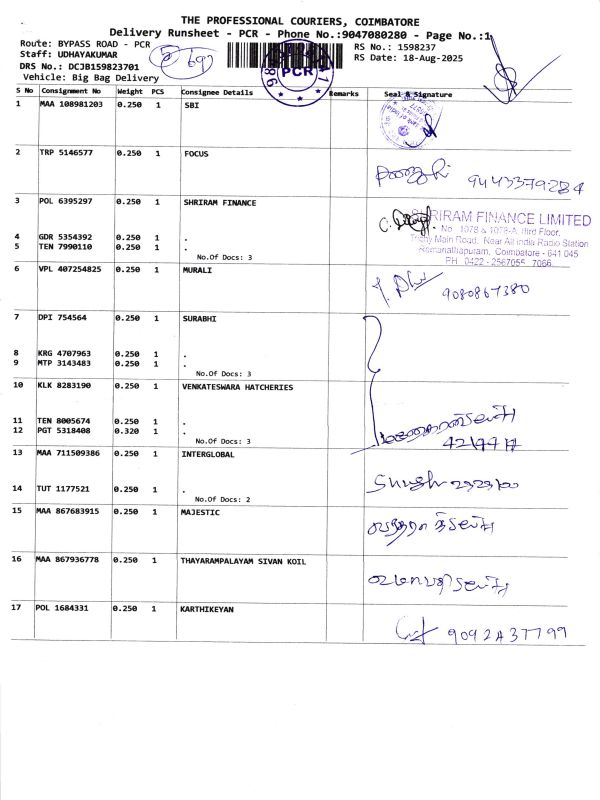 THE PROFESSIONAL COURIERS, COIMBATORE
Delivery Runsheet - PCR - Phone No.:9047080280 - Page No.:1
Route: BYPASS ROAD - PCR
RS No.: 1598237
Staff: UDHAYAKUMAR
RS Date: 18-Aug-2025
DRS No.: DCJB159823701
Vehicle: Big Bag Delivery
PCR
S No Consignment No Weight PCS Consignee Details Remarks Seal & Signature
1 MAA 108981203 0.250 1 SBI
2 TRP 5146577 0.250 1 FOCUS
9443379284
3 POL 6395297 0.250 1 SHRIRAM FINANCE
SHRIRAM FINANCE LIMITED
No. 1078 & 1078-A, IIIrd Floor,
Trichy Main Road, Near All India Radio Station
Ramanathapuram, Coimbatore - 641 045
PH : 0422 - 2567055, 7066
4 GDR 5354392 0.250 1 .
5 TEN 7990110 0.250 1 .
No.Of Docs: 3
6 VPL 407254825 0.250 1 MURALI
9080867380
7 DPI 754564 0.250 1 SURABHI
8 KRG 4707963 0.250 1 .
9 MTP 3143483 0.250 1 .
No.Of Docs: 3
10 KLK 8283190 0.250 1 VENKATESWARA HATCHERIES
11 TEN 8005674 0.250 1 .
12 PGT 5318408 0.320 1 .
No.Of Docs: 3
13 MAA 711509386 0.250 1 INTERGLOBAL
14 TUT 1177521 0.250 1 .
No.Of Docs: 2
15 MAA 867683915 0.250 1 MAJESTIC
16 MAA 867936778 0.250 1 THAYARAMPALAYAM SIVAN KOIL
17 POL 1684331 0.250 1 KARTHIKEYAN